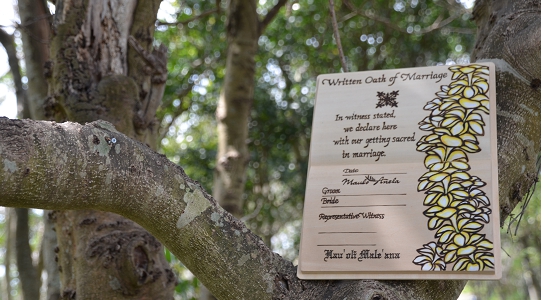 Written Oath of Marriage
In witness stated,
we declare here
with our getting sacred
in marriage.
Date:
Groom
Bride
Representative Witness
Hau'oli Male'ana